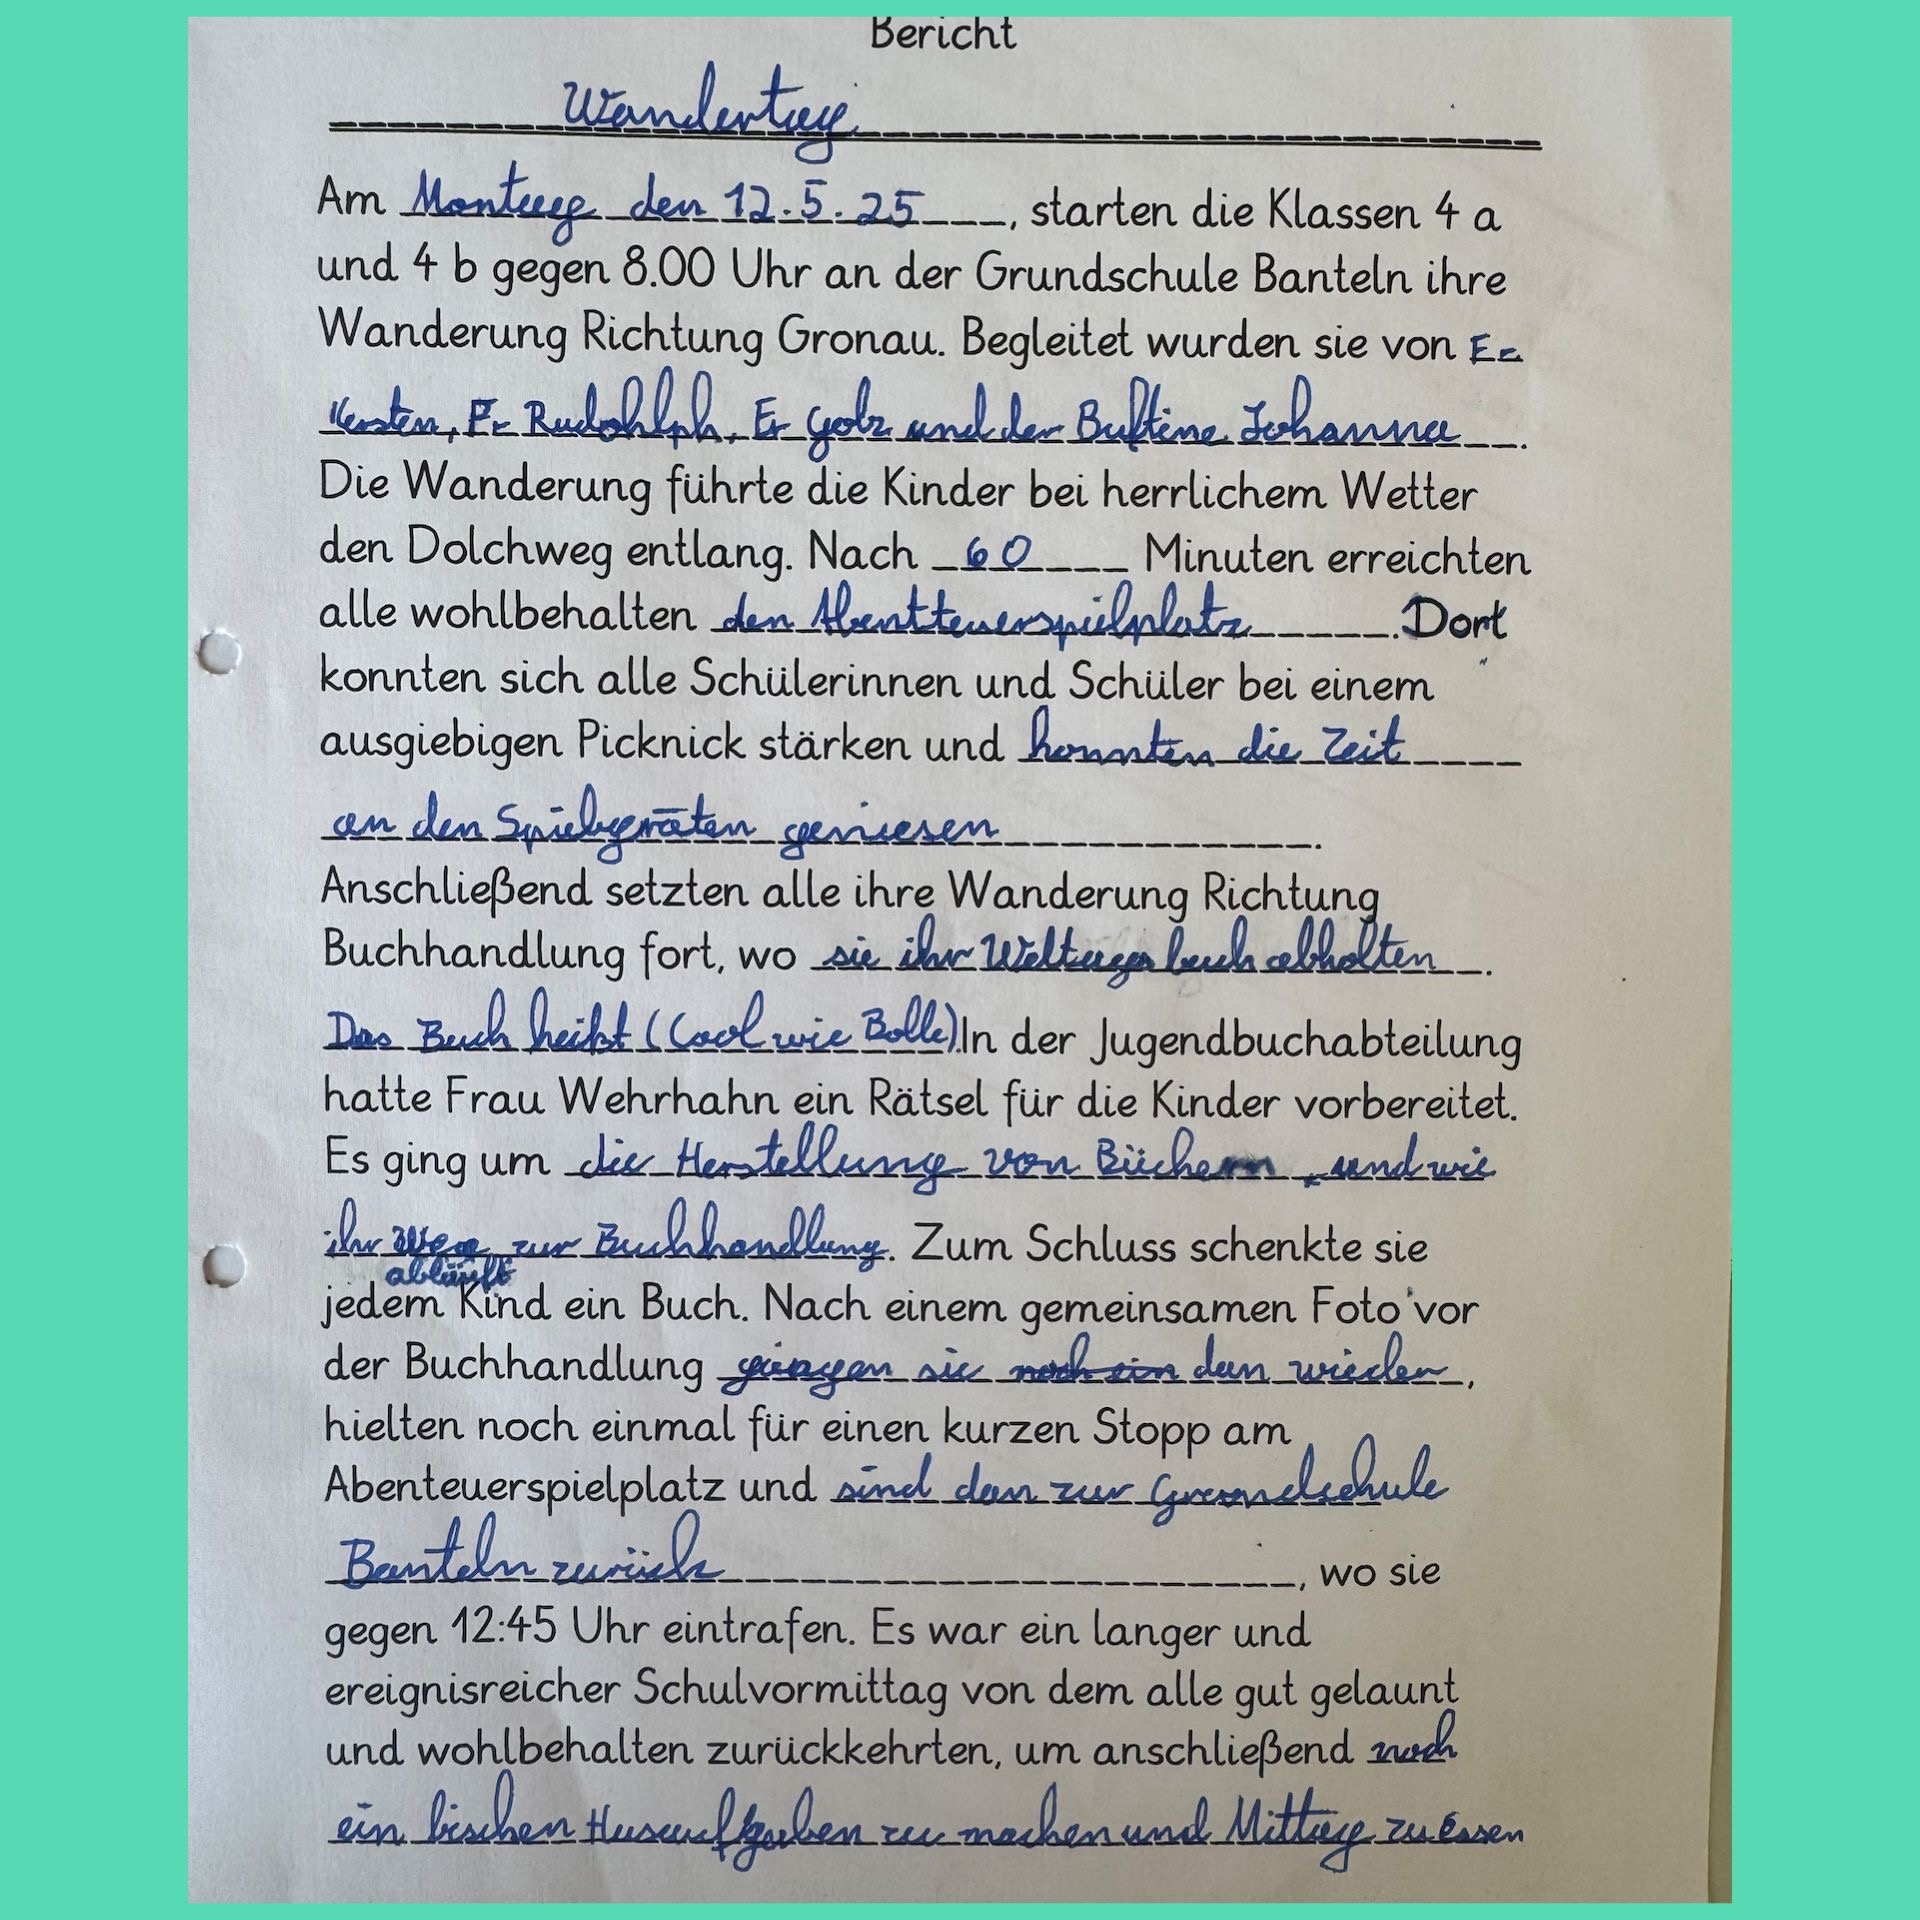 Bericht
Wandertag
Am Montag den 12.5.25, starten die Klassen 4 a
und 4 b gegen 8.00 Uhr an der Grundschule Banteln ihre
Wanderung Richtung Gronau. Begleitet wurden sie von Fr
Kersten, Fr Rudohlph, Fr Golz und der Buftine Johanna.
Die Wanderung führte die Kinder bei herrlichem Wetter
den Dolchweg entlang. Nach 60 Minuten erreichten
alle wohlbehalten den Abentteuerspielplatz. Dort
konnten sich alle Schülerinnen und Schüler bei einem
ausgiebigen Picknick stärken und konnten die Zeit
an den Spielgeräten geniesen.
Anschließend setzten alle ihre Wanderung Richtung
Buchhandlung fort, wo sie ihr Weltags buch abholten.
Das Buch heißt (Cool wie Bolle). In der Jugendbuchabteilung
hatte Frau Wehrhahn ein Rätsel für die Kinder vorbereitet.
Es ging um die Herstellung von Büchern, und wie
ihr Weg zur Buchhandlung. Zum Schluss schenkte sie
abläuft
jedem Kind ein Buch. Nach einem gemeinsamen Foto vor
der Buchhandlung gingen sie noch ein dan wieder,
hielten noch einmal für einen kurzen Stopp am
Abenteuerspielplatz und sind dan zur Grundschule
Banteln zurück, wo sie
gegen 12:45 Uhr eintrafen. Es war ein langer und
ereignisreicher Schulvormittag von dem alle gut gelaunt
und wohlbehalten zurückkehrten, um anschließend noch
ein bischen Husaufgaben zu machen und Mittag zu essen